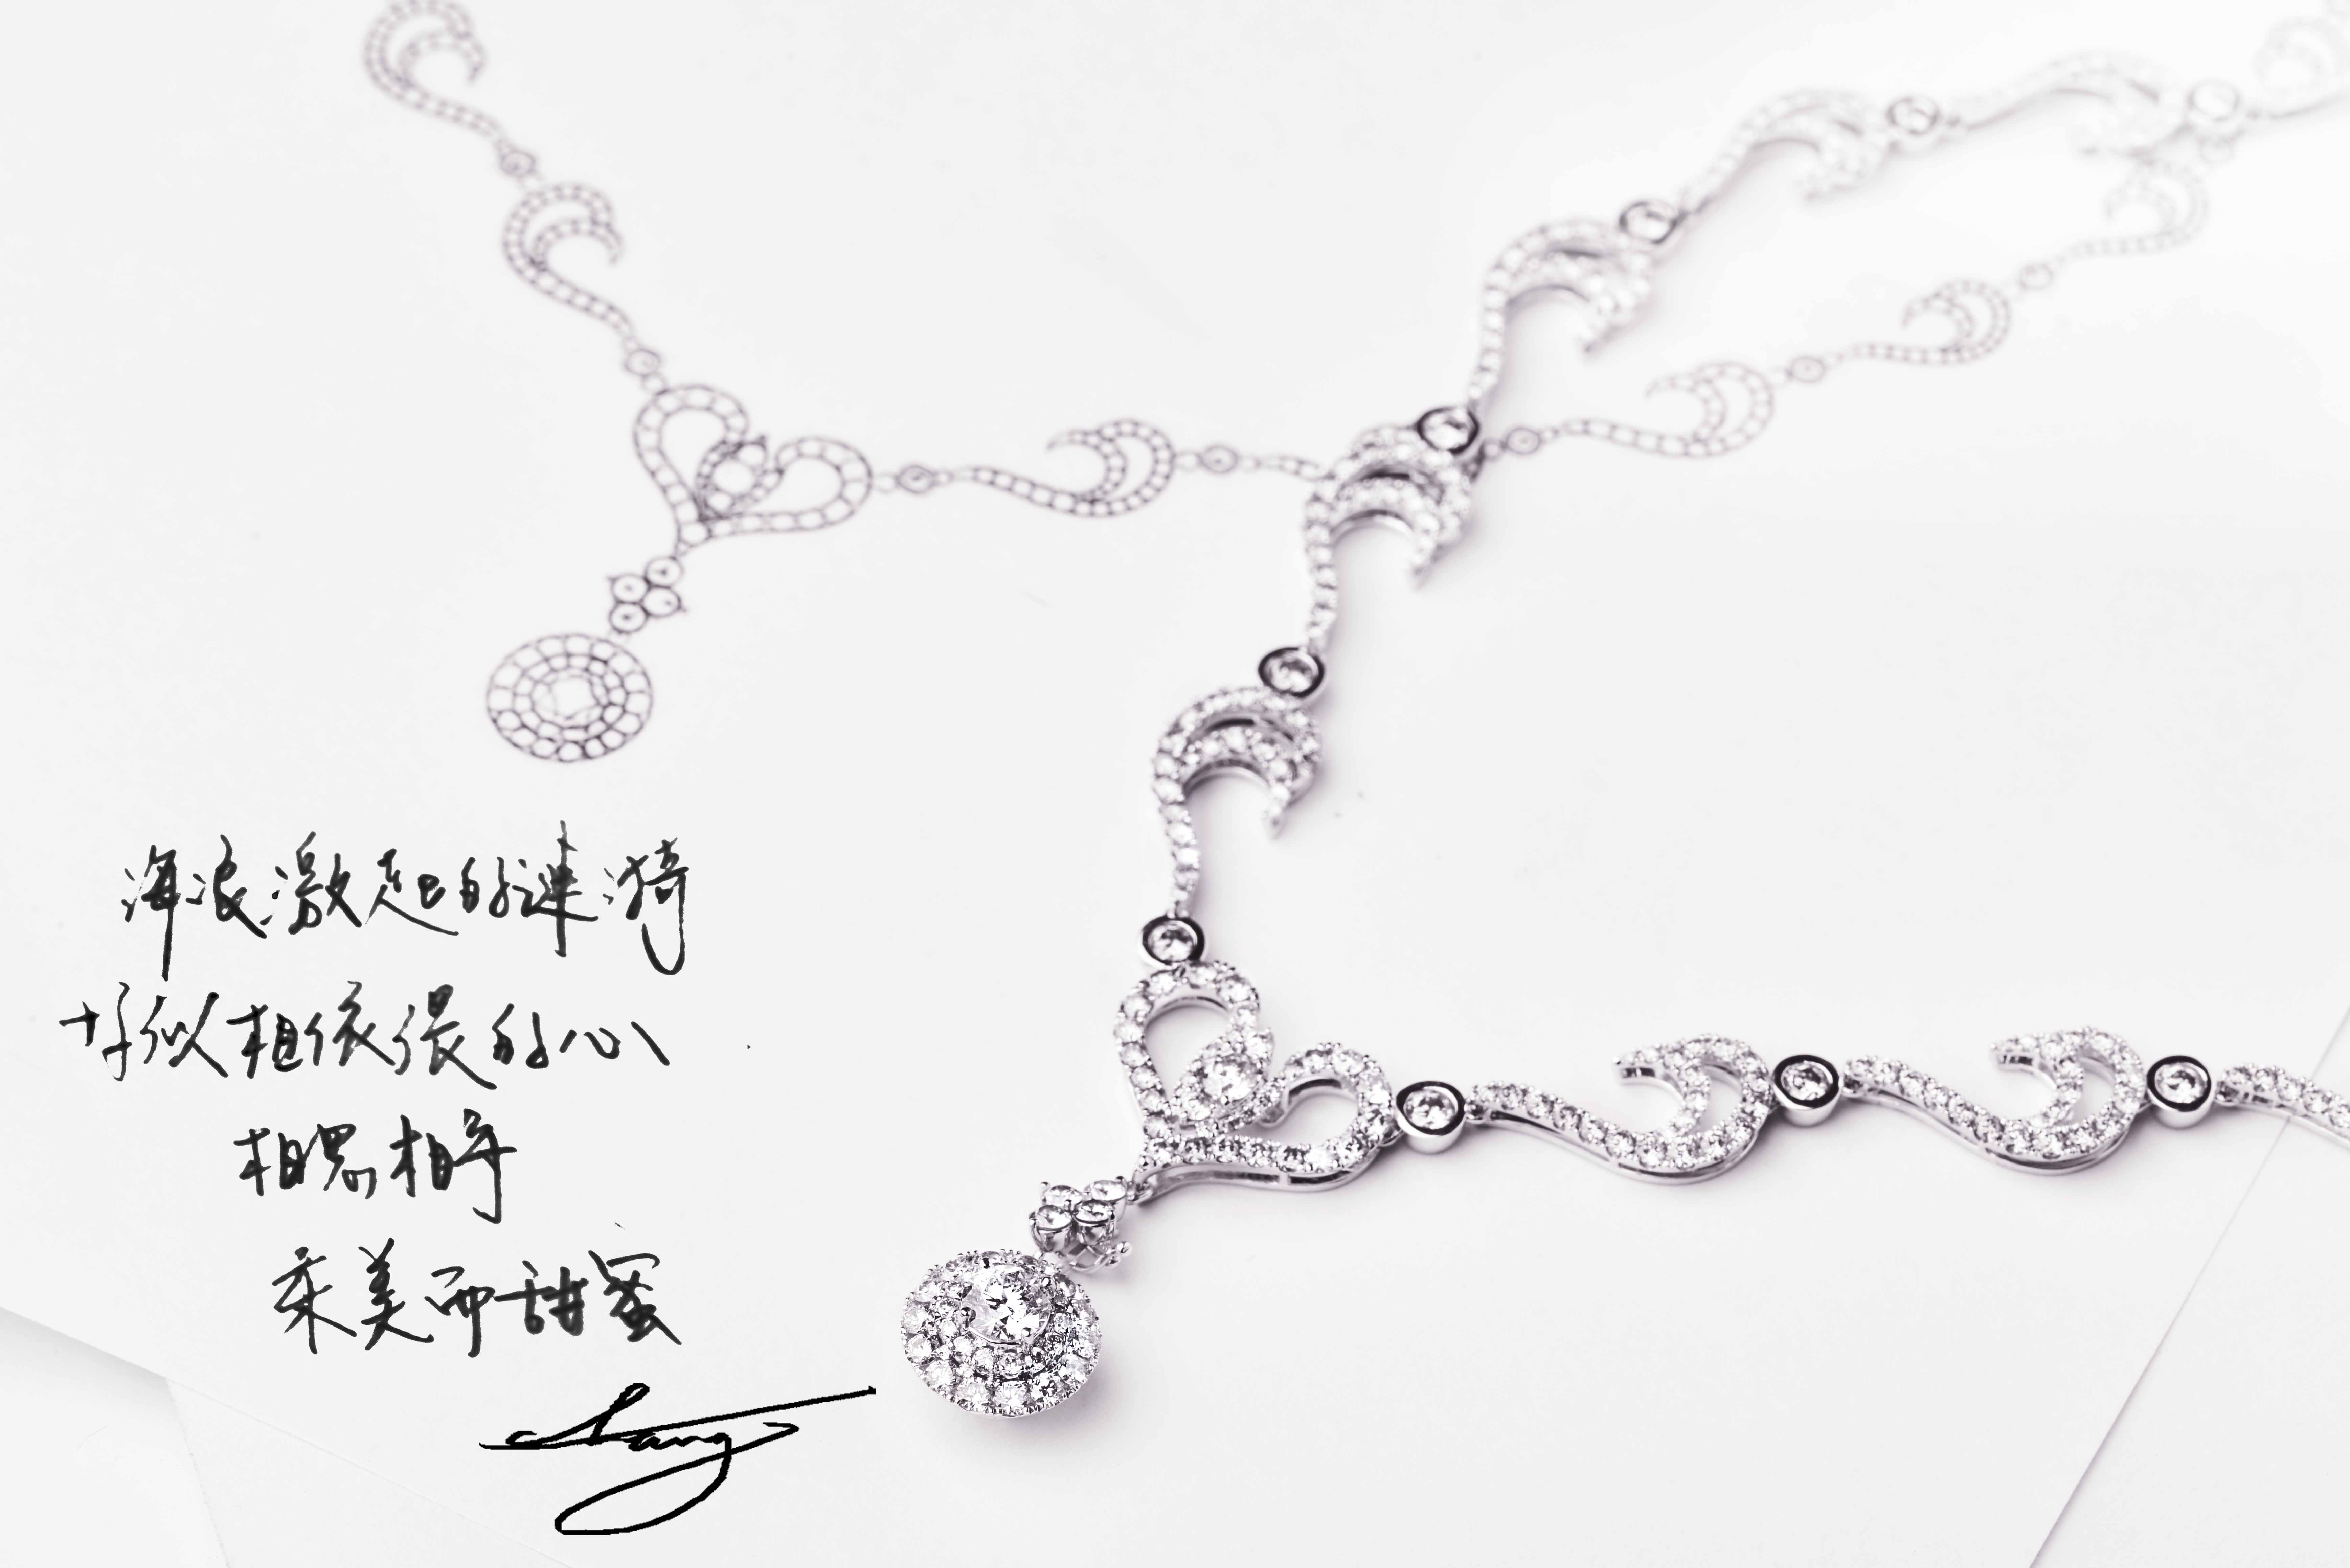 海浪激起的漣漪
好似相依偎的心
相思相守
柔美而甜蜜